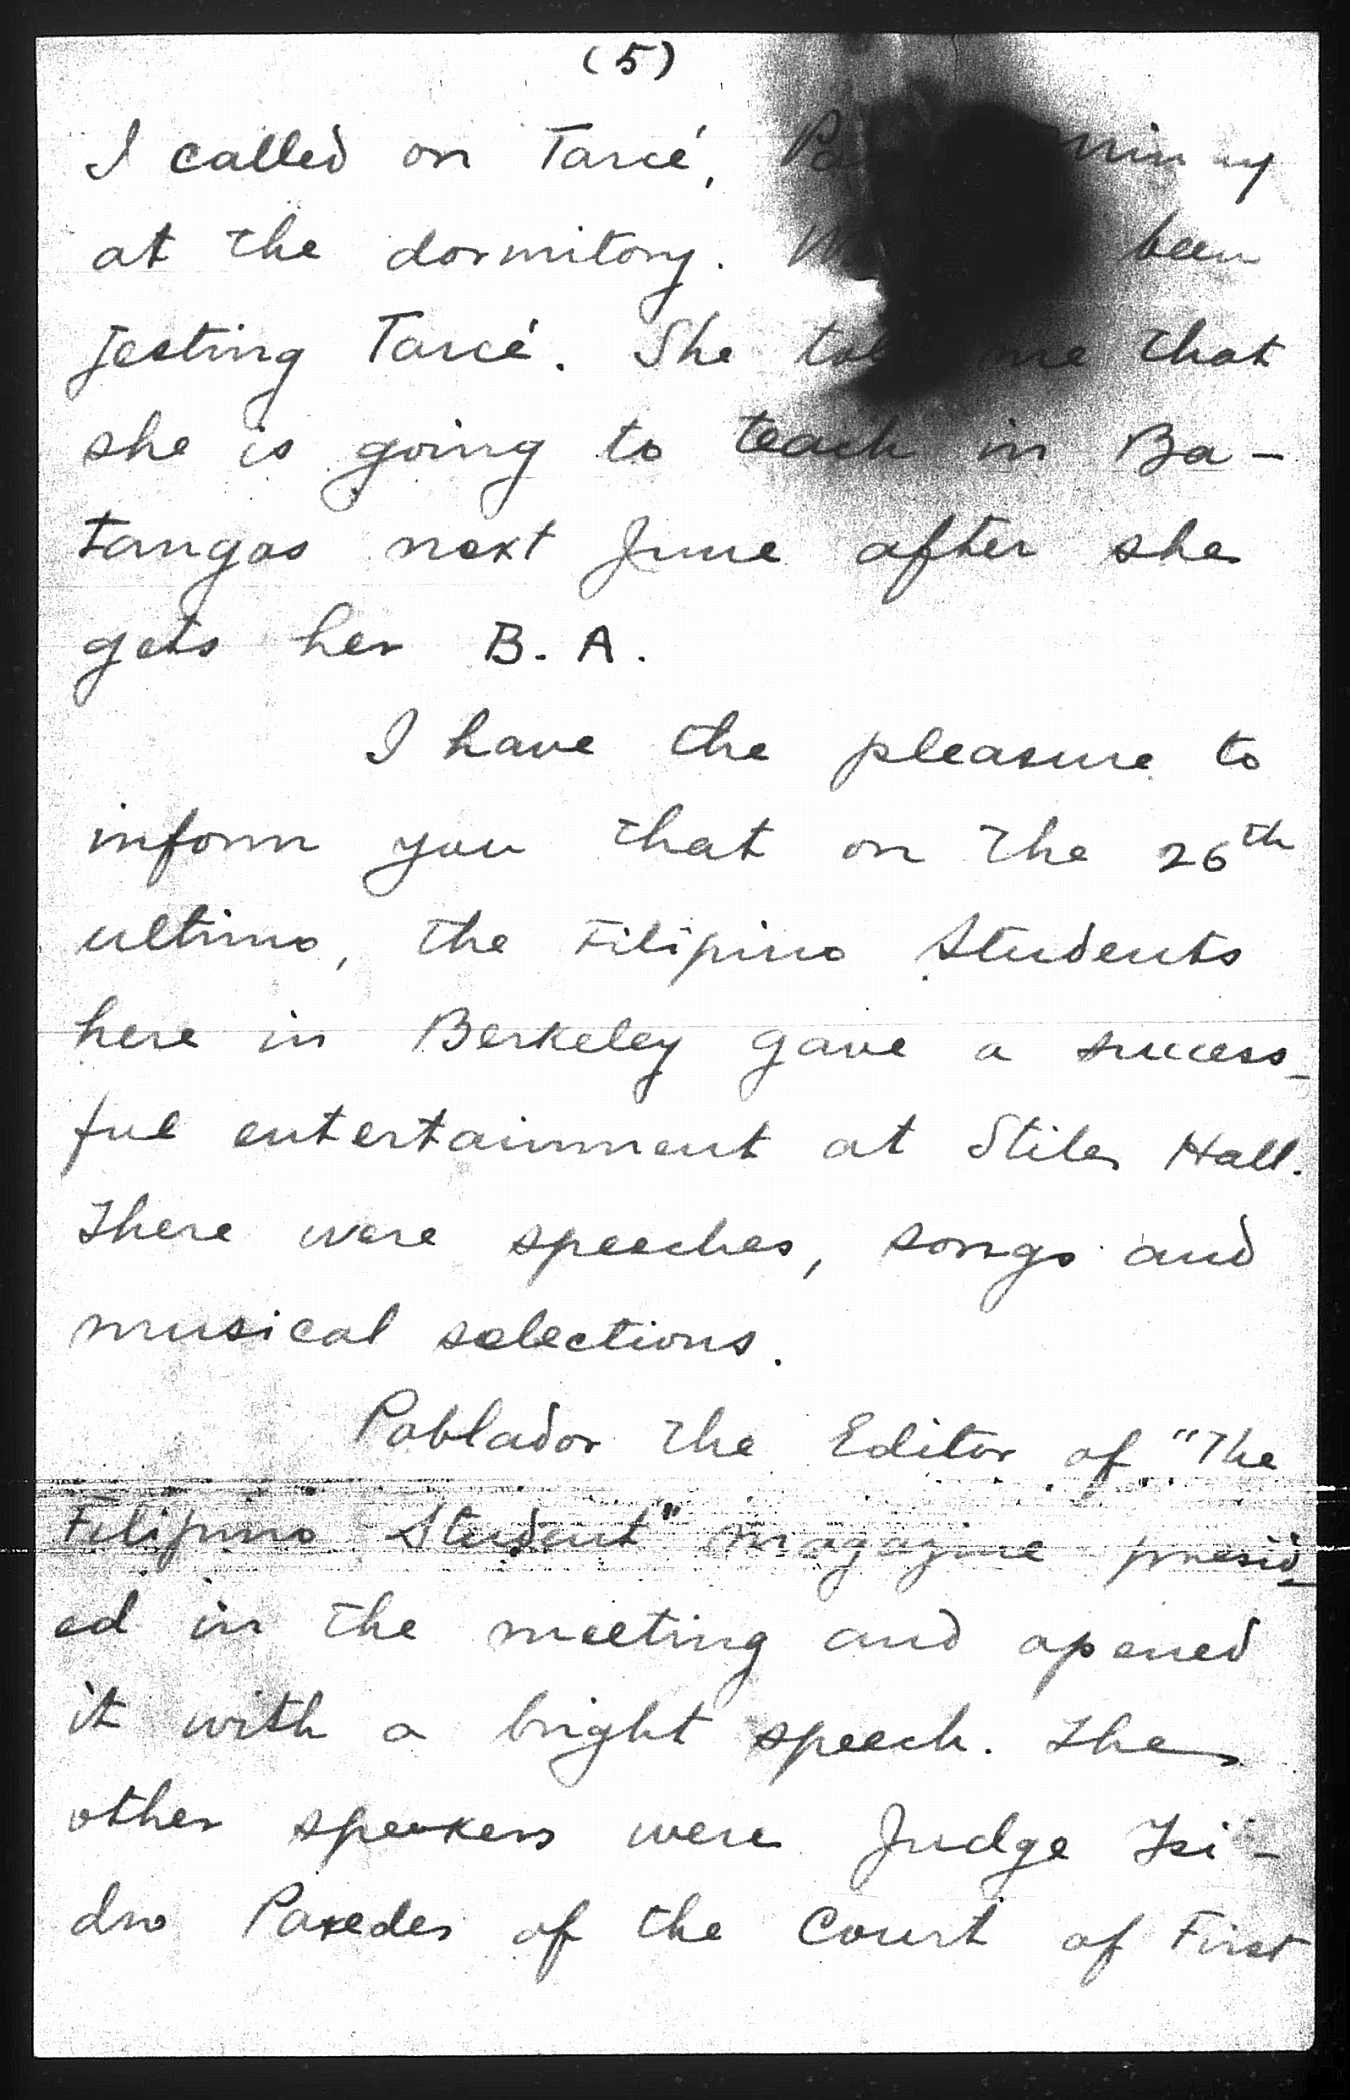 (5)
I called on Tarcé,
at the dormitory. been
jesting Tarcé. She told me that
she is going to teach in Ba-
tangas next June after she
gets her B. A.
I have the pleasure to
inform you that on the 26th
ultimo, the Filipino Students
here in Berkeley gave a success-
ful entertainment at Stiles Hall.
There were speeches, songs and
musical selections.
Poblador the Editor of "The
Filipino Student" magazine presid-
ed in the meeting and opened
it with a bright speech. The
other speakers were Judge Isi-
dro Paredes of the Court of First